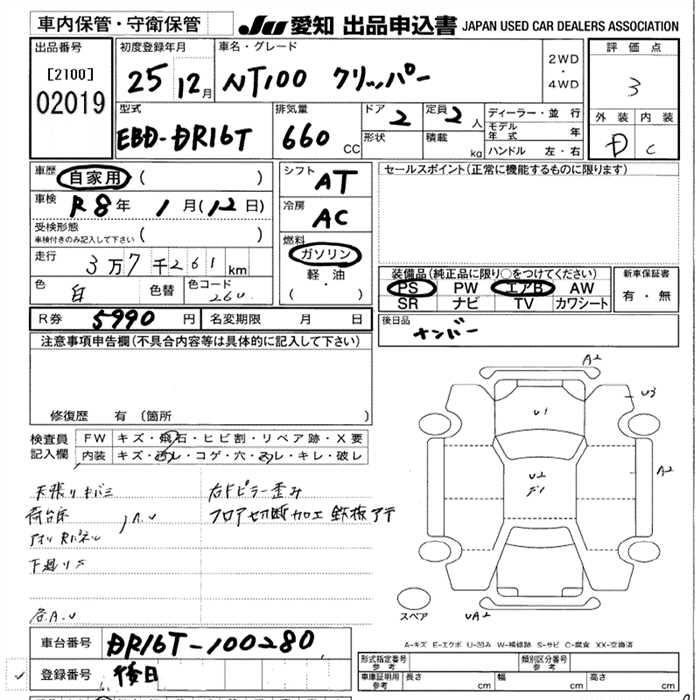 車内保管・守衛保管
JU 愛知 出品申込書 JAPAN USED CAR DEALERS ASSOCIATION
出品番号
[2100]
02019
初度登録年月
25 12月
車名・グレード
NT100 クリッパー
2WD
・
4WD
評価点
3
外装 内装
D C
型式
EBD-DR16T
排気量
660 CC
ドア
2
形状
定員
2人
積載
kg
ディーラー・並行
モデル年式 年
ハンドル 左・右
車歴
自家用 ( )
車検
R8年 1月(12日)
受検形態
車検付きのみ記入して下さい ( )
走行
3万7千261km
色
白
色替
色コード
260
シフト
AT
冷房
AC
燃料
ガソリン
軽油
( ・ )
セールスポイント(正常に機能するものに限ります)
装備品(純正品に限り○をつけてください)
PS PW エアB AW
SR ナビ TV カワシート
新車保証書
有・無
R券 5990円
名変期限 月 日
後日品
ナンバー
注意事項申告欄(不具合内容等は具体的に記入して下さい)
修復歴 有 (箇所
検査員
記入欄
FW キズ・飛石・ヒビ割・リペア跡・X要
内装 キズ・汚レ・コゲ・穴・スレ・キレ・破レ
天張りキバミ
荷台床
A.U
下廻りサ
右Fピラー歪み
フロア切断加工 鉄板アテ
A2
U3
U1
U2
A2
UA2
スペア
A-キズ E-エクボ U-凹み W-補修跡 S-サビ C-腐食 XX-交換済
車台番号 DR16T-100280
登録番号 後日
形式指定番号
参考
類別区分番号
参考
車庫証明用
参考
長さ cm
幅 cm
高さ cm